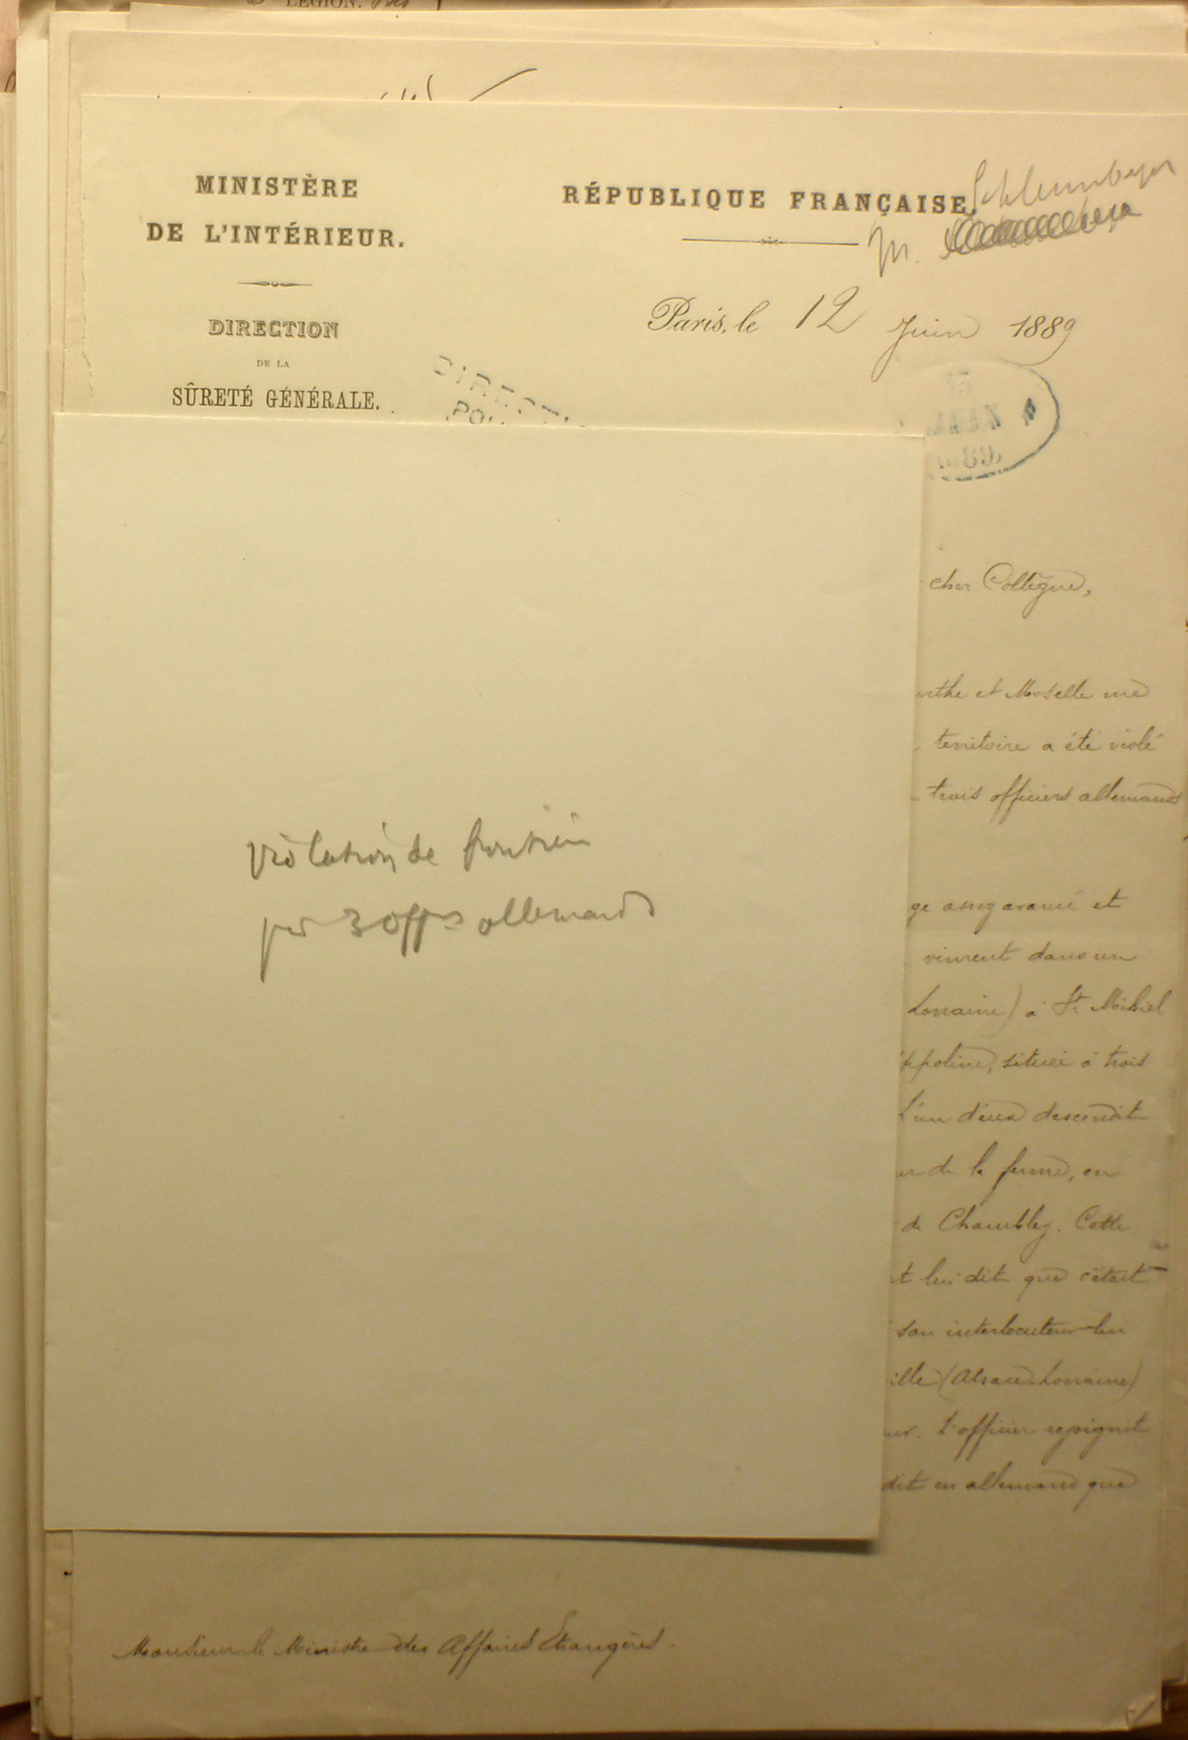 LEGION.
MINISTÈRE
DE L'INTÉRIEUR.
DIRECTION
DE LA
SÛRETÉ GÉNÉRALE.
RÉPUBLIQUE FRANÇAISE.
Schlumberger
M.
Paris, le 12 Juin 1889
DIRECT
POL
89
cher Collègue,
urthe et Moselle me
territoire a été violé
trois officiers allemands
ge assez avancé et
vinrent dans un
Lorraine) à St. Mihiel
ppoline, située à trois
L'un d'eux descendit
de la ferme, en
de Chambley. Cette
t lui dit que c'était
son interlocuteur lui
ille (Alsace-Lorraine)
L'officier rejoignit
dit en allemand que
violation de frontière
par 3 offrs allemands
Monsieur le Ministre des Affaires Etrangères.